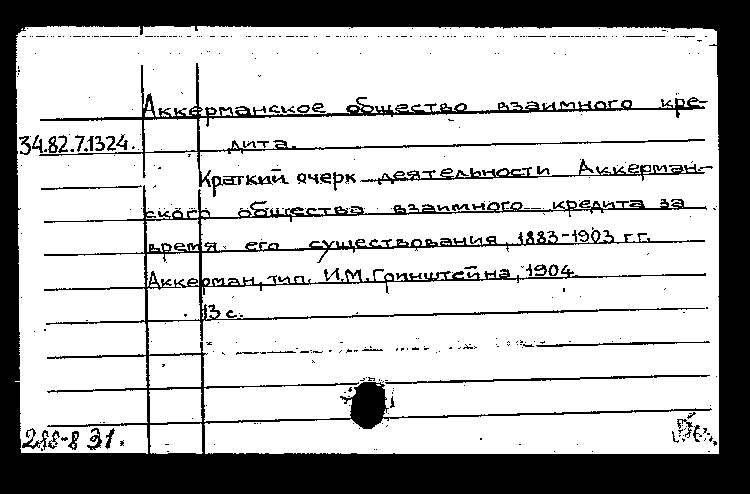 Аккерманское общество взаимного кре-
34.82.7.1324. дита.
Краткий очерк деятельности Аккерман-
ского общества взаимного кредита за
время его существования, 1883-1903 г.г.
Аккерман, тип. И.М. Гринштейна, 1904.
13 с.
288-8 31.